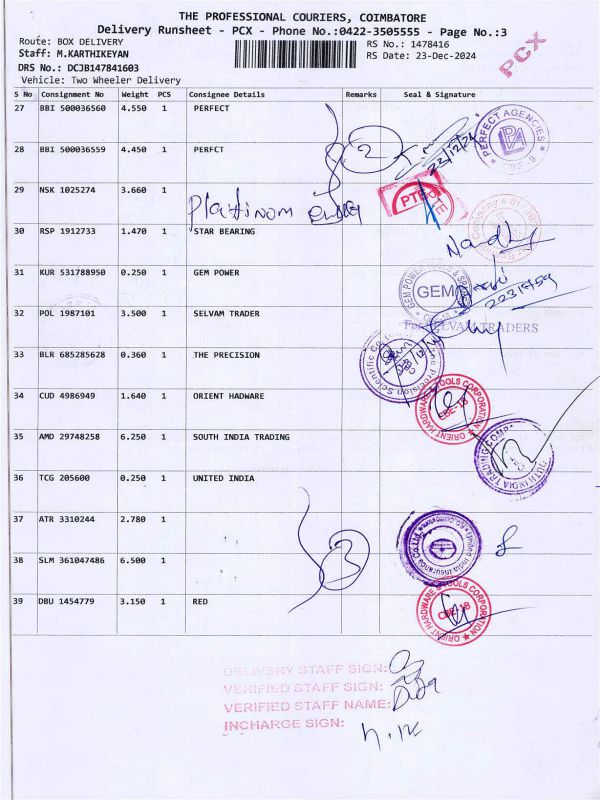 THE PROFESSIONAL COURIERS, COIMBATORE
Delivery Runsheet - PCX - Phone No.:0422-3505555 - Page No.:3
Route: BOX DELIVERY
RS No.: 1478416
PCX
Staff: M.KARTHIKEYAN
RS Date: 23-Dec-2024
DRS No.: DCJB147841603
Vehicle: Two Wheeler Delivery
S No Consignment No Weight PCS Consignee Details Remarks Seal & Signature
27 BBI 500036560 4.550 1 PERFECT
28 BBI 500036559 4.450 1 PERFCT
2
23/12/24
PERFECT AGENCIES
CBE - 9
29 NSK 1025274 3.660 1
Platinom
PTE
30 RSP 1912733 1.470 1 STAR BEARING
31 KUR 531788950 0.250 1 GEM POWER
GEM
32 POL 1987101 3.500 1 SELVAM TRADER
For SELVAM TRADERS
33 BLR 685285628 0.360 1 THE PRECISION
Precision Scientific Co
34 CUD 4986949 1.640 1 ORIENT HADWARE
ORIENT HARDWARE & TOOLS CORPORATION
CBE-18
35 AMD 29748258 6.250 1 SOUTH INDIA TRADING
SOUTH INDIA TRADING COMP
36 TCG 205600 0.250 1 UNITED INDIA
37 ATR 3310244 2.780 1
United India Insurance Co.Ltd.
38 SLM 361047486 6.500 1
3
39 DBU 1454779 3.150 1 RED
ORIENT HARDWARE & TOOLS CORPORATION
CBE-18
DELIVERY STAFF SIGN:
VERIFIED STAFF SIGN:
VERIFIED STAFF NAME:
INCHARGE SIGN: